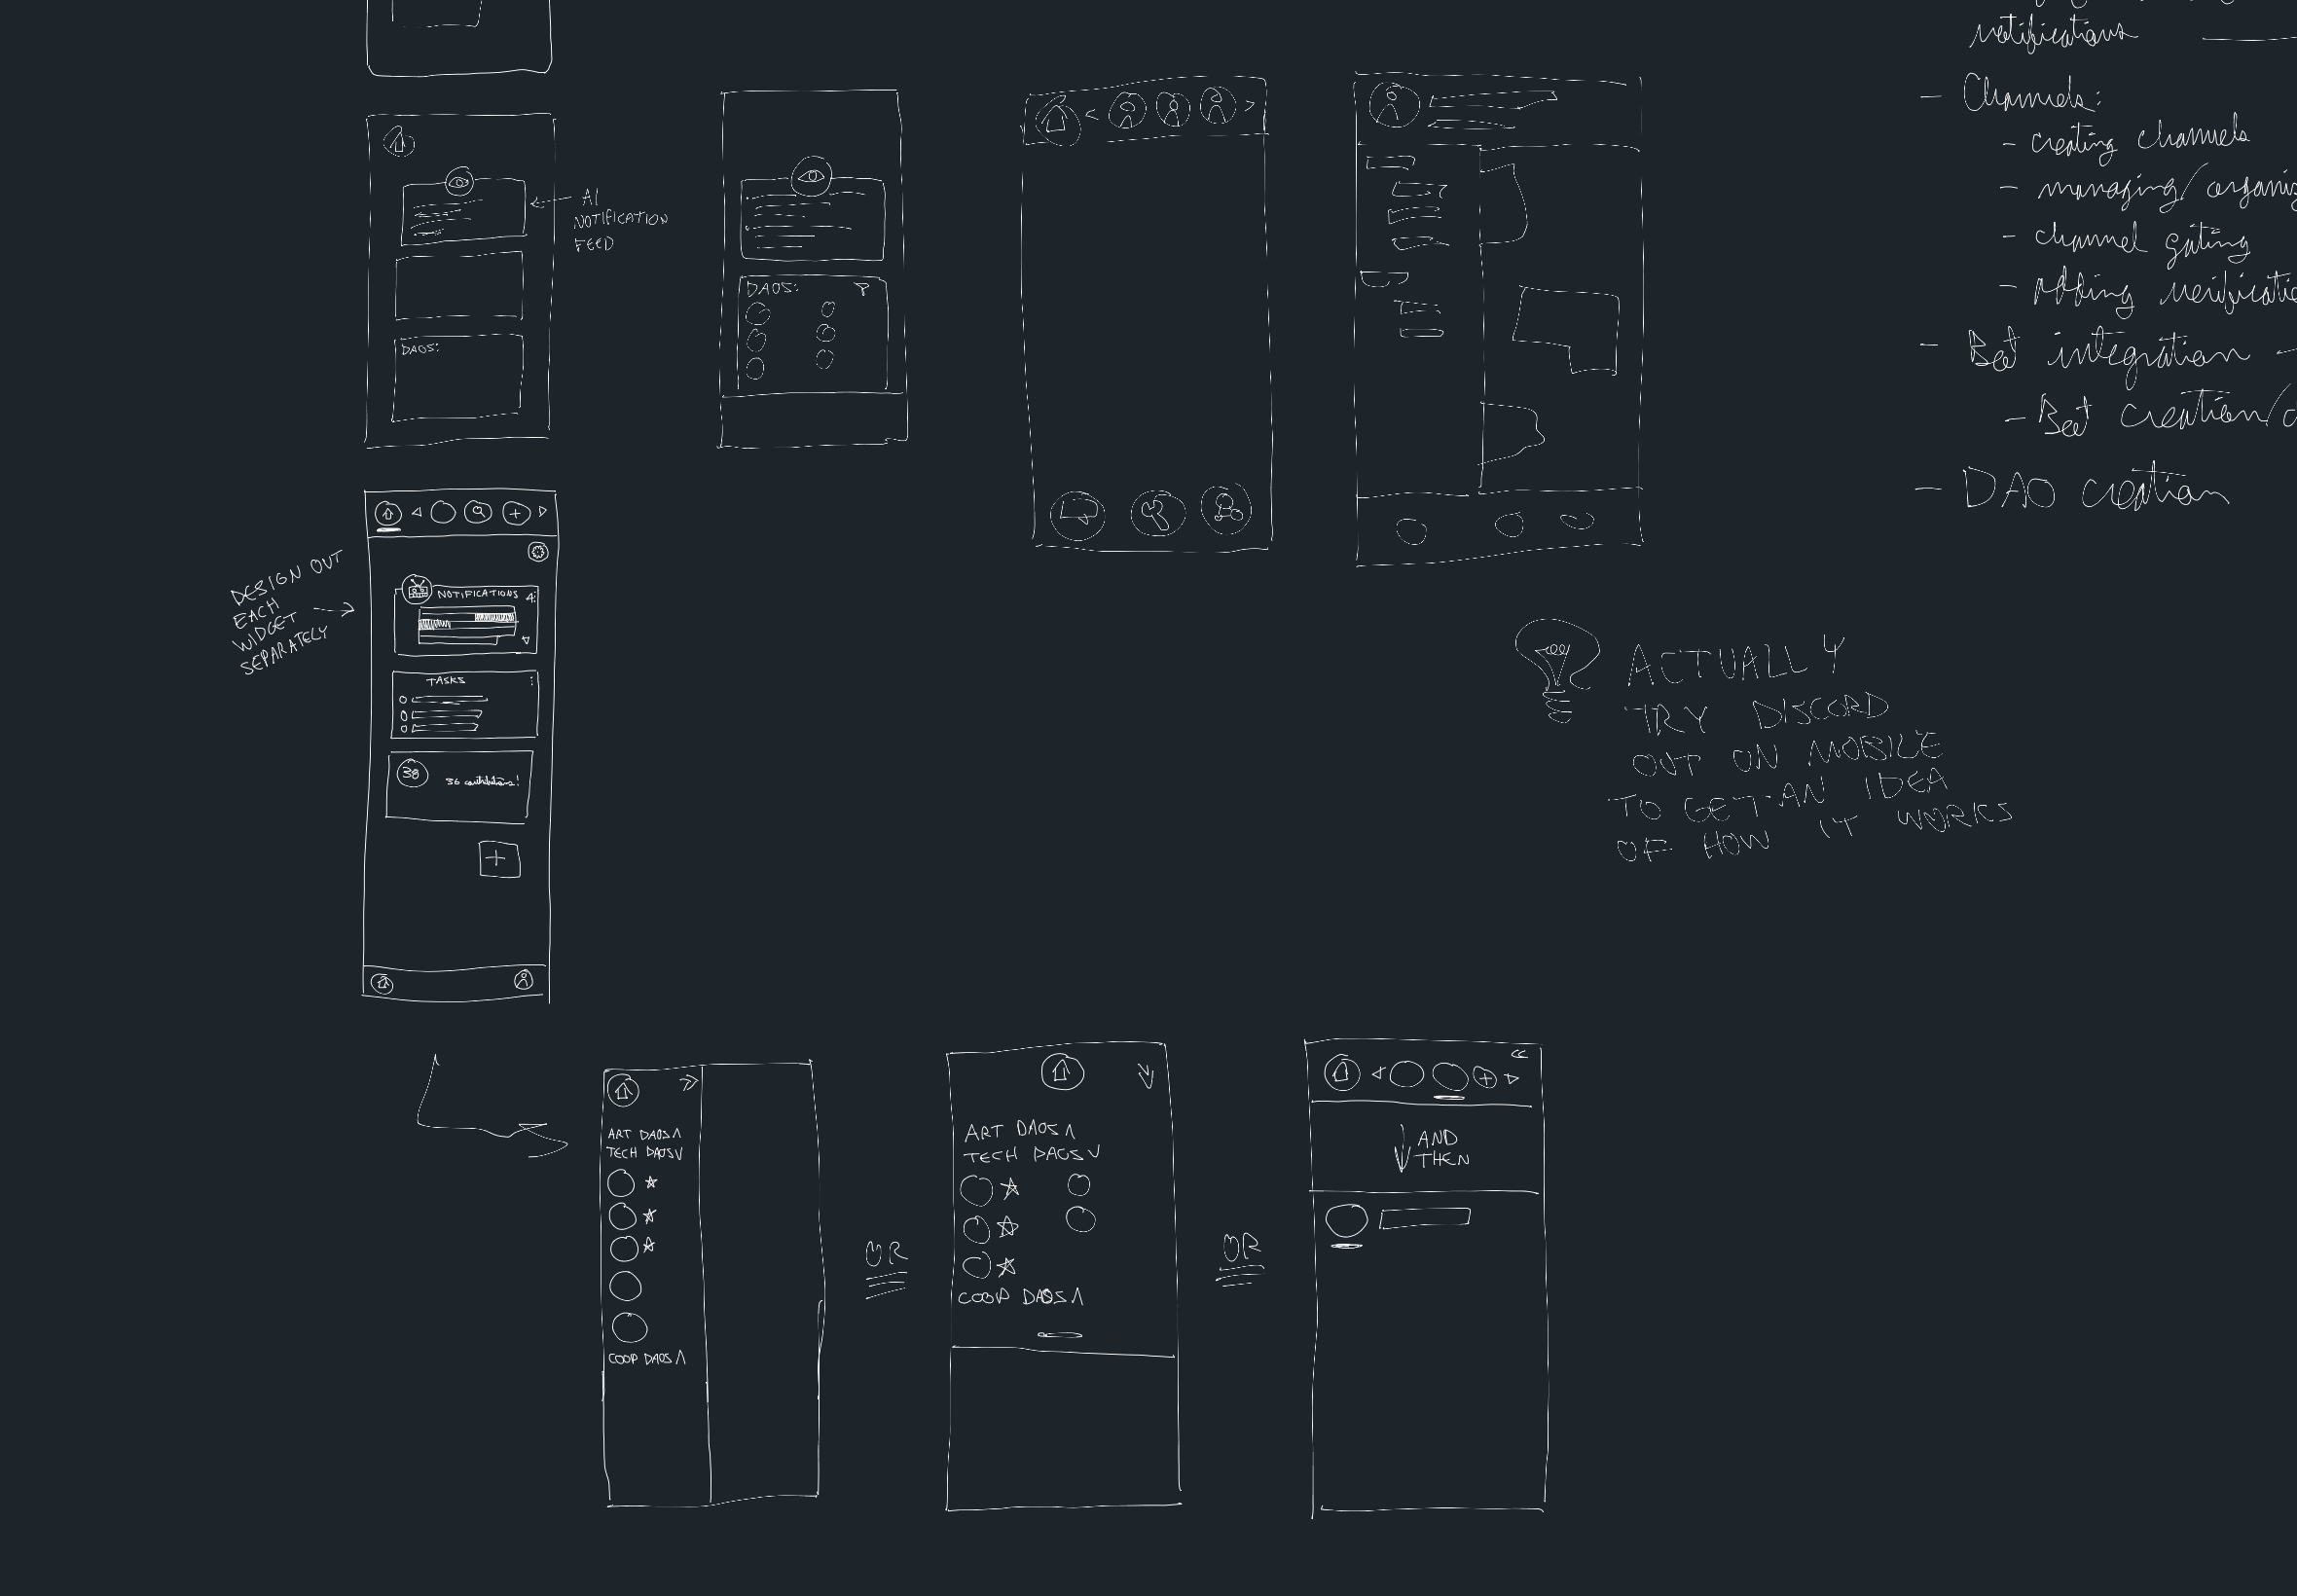 notifications
- Channels:
- creating channels
- managing/organiz
- channel gating
- adding verificatio
- Bot integration -
- Bot creation/c
- DAO creation
AI
NOTIFICATION
FEED
DAOS:
DAOS:
DESIGN OUT
EACH
WIDGET
SEPARATELY
NOTIFICATIONS 4
TASKS
38
36 contributions!
ACTUALLY
TRY DISCORD
OUT ON MOBILE
TO GET AN IDEA
OF HOW IT WORKS
ART DAOS
TECH DAOS
COOP DAOS
OR
ART DAOS
TECH DAOS
COOP DAOS
OR
AND
THEN